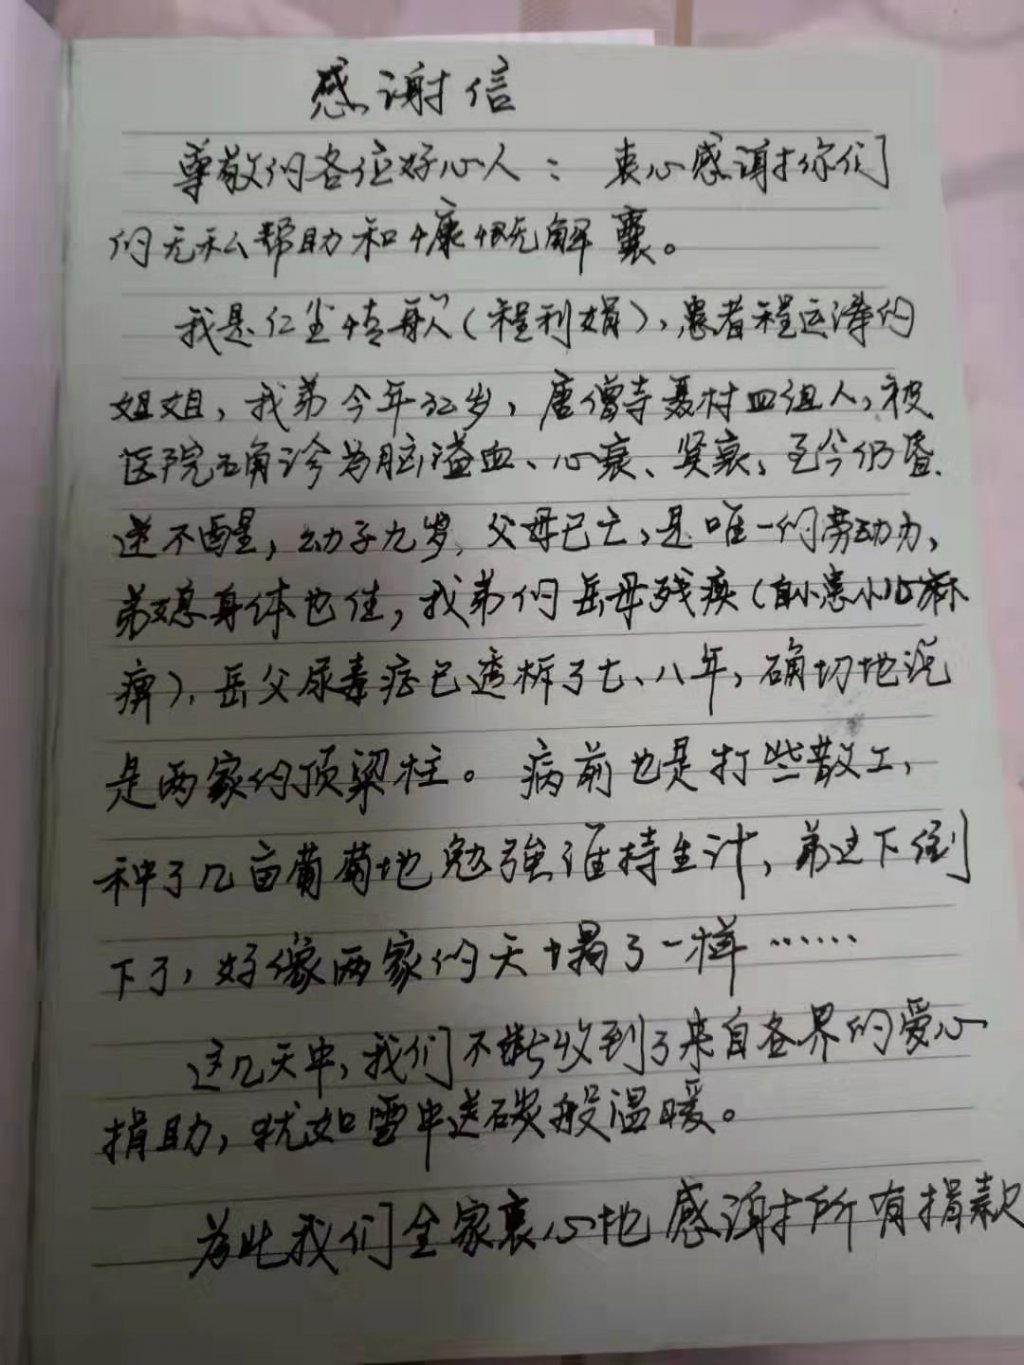 感谢信
尊敬的各位好心人：衷心感谢你们
的无私帮助和慷慨解囊。
我是仁尘情缘（程利娟），患者程运泽的
姐姐，我弟今年32岁，唐僧寺聂村四组人，被
医院确诊为脑溢血、心衰、肾衰，至今仍昏
迷不醒，幼子九岁，父母已亡，是唯一的劳动力，
弟媳身体也佳，我弟的岳母残疾（自小患小儿麻
痹），岳父尿毒症已透析了七、八年，确切地说
是两家的顶梁柱。病前也是打些散工，
种了几亩葡萄地勉强维持生计，弟这下倒
下了，好像两家的天塌了一样……
这几天中，我们不断收到了来自各界的爱心
捐助，犹如雪中送碳般温暖。
为此我们全家衷心地感谢所有捐款